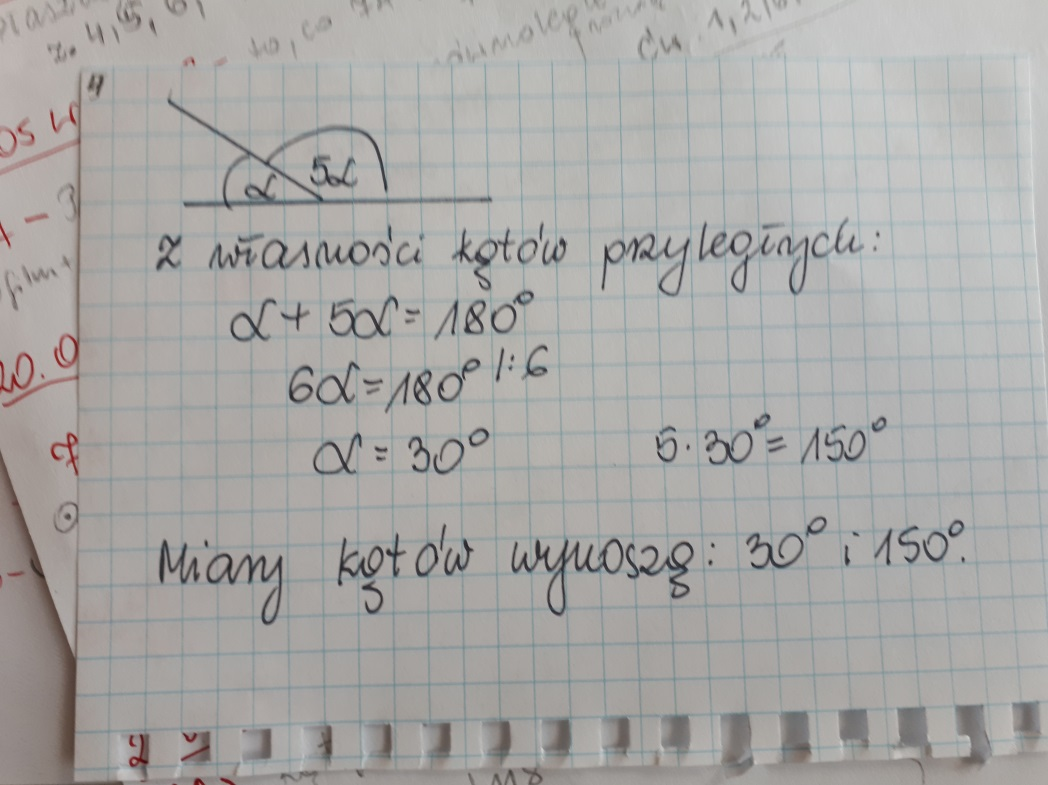 z. 4,5,6,
to, co
ćw. 1,2
4
α 5α
Z własności kątów przyległych:
α + 5α = 180°
6α = 180° /:6
α = 30° 5·30° = 150°
Miary kątów wynoszą: 30° i 150°.
20.0